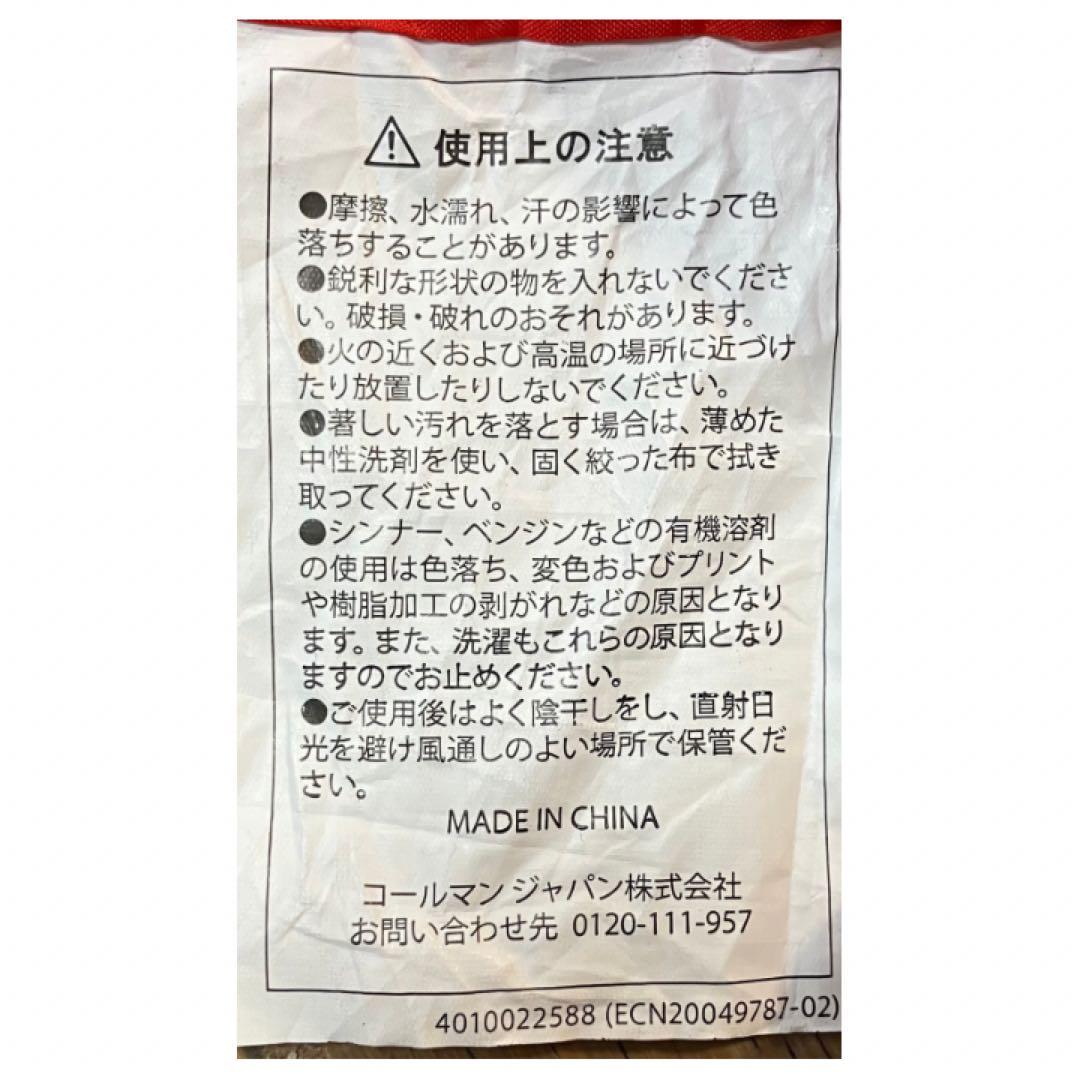 ⚠ 使用上の注意
●摩擦、水濡れ、汗の影響によって色
落ちすることがあります。
●鋭利な形状の物を入れないでくださ
い。破損・破れのおそれがあります。
●火の近くおよび高温の場所に近づけ
たり放置したりしないでください。
●著しい汚れを落とす場合は、薄めた
中性洗剤を使い、固く絞った布で拭き
取ってください。
●シンナー、ベンジンなどの有機溶剤
の使用は色落ち、変色およびプリント
や樹脂加工の剥がれなどの原因となり
ます。また、洗濯もこれらの原因となり
ますのでお止めください。
●ご使用後はよく陰干しをし、直射日
光を避け風通しのよい場所で保管くだ
さい。
MADE IN CHINA
コールマン ジャパン株式会社
お問い合わせ先 0120-111-957
4010022588 (ECN20049787-02)